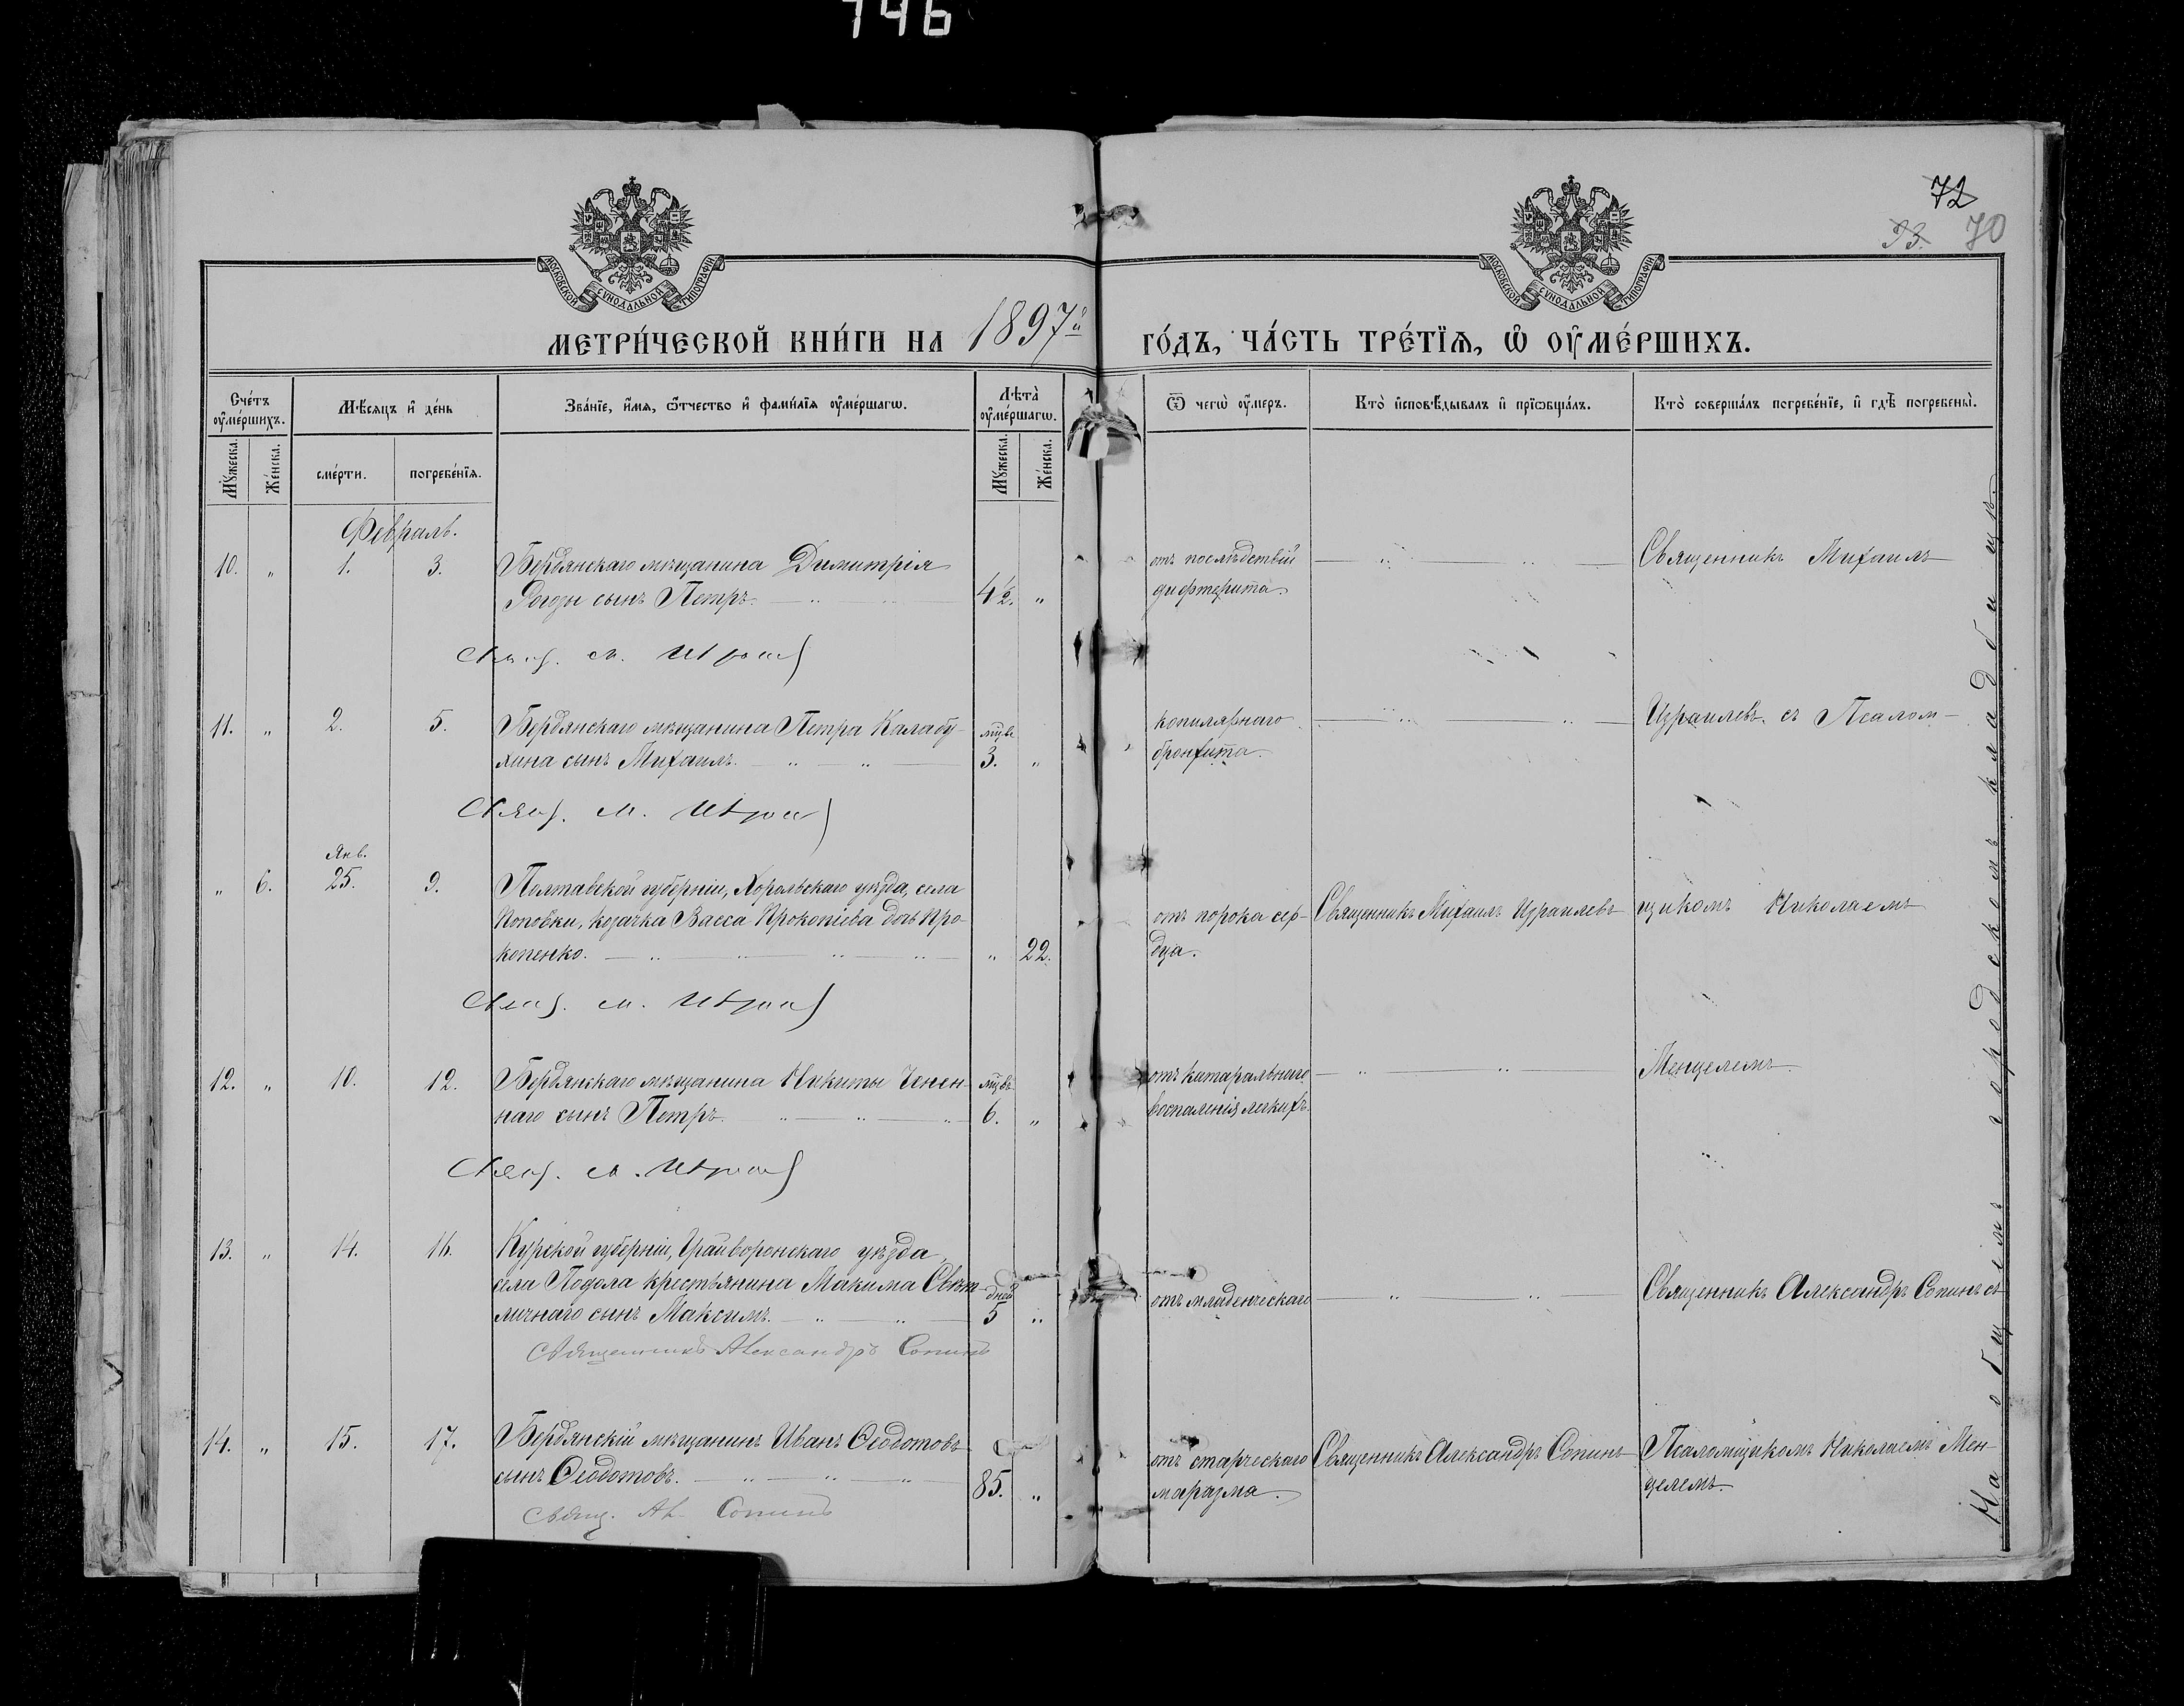 746
72
93. 70
МОСКОВСКОЙ СУНОДАЛЬНОЙ ТИПОГРАФІИ
МОСКОВСКОЙ СУНОДАЛЬНОЙ ТИПОГРАФІИ
МЕТРИ́ЧЕСКОЙ КНИ́ГИ НА 1897й ГО́ДЪ, ЧА́СТЬ ТРЕ́ТЇѦ, Ѡ҆ ОУ҆МЕ́РШИХЪ.
Сче́тъ оу҆ме́ршихъ.
Мꙋ́жеска.
Же́нска.
Мѣ́сяцъ и҆ де́нь
сме́рти.
погребе́нїѧ.
Зва́нїе, и҆́мѧ, ѻ҆́тчество и҆ фами́лїѧ оу҆ме́ршагѡ.
Лѣта̀ оу҆ме́ршагѡ.
Мꙋ́жеска.
Же́нска.
Ѿ чегѡ̀ оу҆́меръ.
Кто̀ и҆сповѣ́дывалъ и҆ прїѡбща́лъ.
Кто̀ соверша́лъ погребе́нїе, и҆ гдѣ̀ погребены̀.
Февраль.
10. " 1. 3. Бердянскаго мѣщанина Димитрія
Рогды сынъ Петръ. 4½. "
отъ послѣдствій
дифтерита.
Священникъ Михаилъ
11. " 2. 5. Бердянскаго мѣщанина Петра Калабу-
хина сынъ Михаилъ. мцвъ 3. "
копилярнаго
бронхита.
Израилевъ съ Псалом-
" 6. Янв. 25. 9. Полтавской губерніи, Хорольскаго уѣзда, села
Поповки, козачка Васса Прокопіева дочь Про-
копенко. " 22.
отъ порока сер-
дца.
Священникъ Михаилъ Израилевъ
щикомъ Николаемъ
12. " 10. 12. Бердянскаго мѣщанина Никиты Чепен-
наго сынъ Петръ. мцвъ 6. "
отъ катаральнаго
воспаленія легкихъ.
Менцелемъ.
13. " 14. 16. Курской губерніи, Грайворонскаго уѣзда
села Подола крестьянина Макима Свѣт-
личнаго сынъ Максимъ. дней 5 "
отъ младенческаго
Священникъ Александръ Сопинъ съ
Священникъ Александръ Сопинъ
14. " 15. 17. Бердянскій мѣщанинъ Иванъ Ѳеодотовъ
сынъ Ѳеодотовъ. 85. "
отъ старческаго
маразма.
Священникъ Александръ Сопинъ
Псаломщикомъ Николаемъ Мен-
целемъ.
Свящ. Ал. Сопинъ
На общемъ городскомъ кладбищѣ.